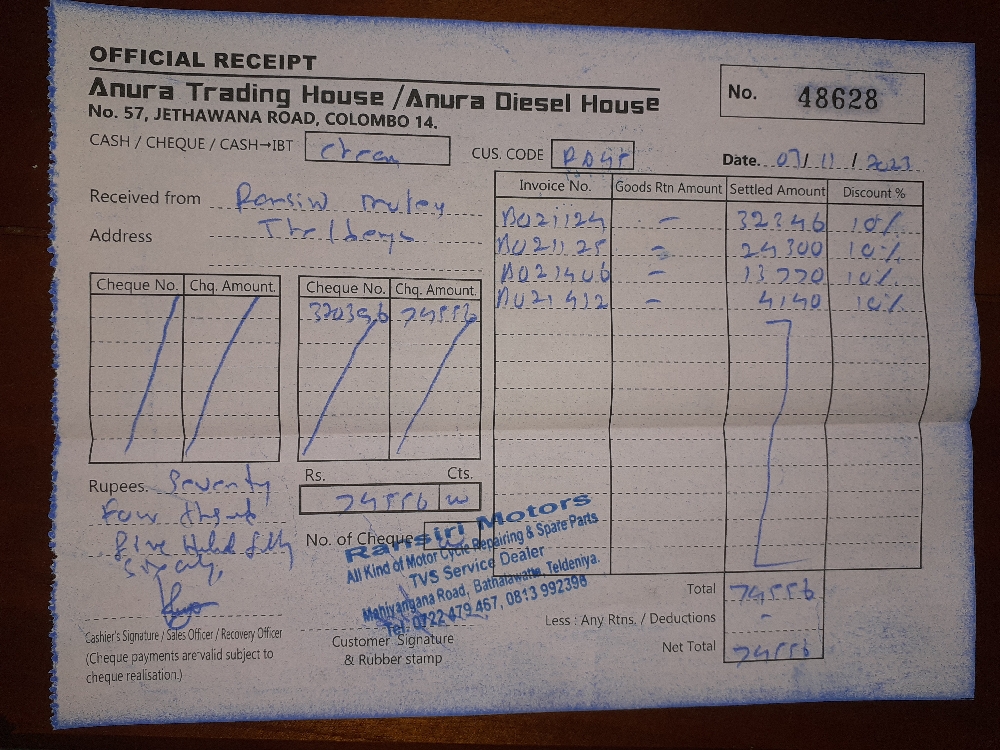 OFFICIAL RECEIPT
Anura Trading House / Anura Diesel House
No. 57, JETHAWANA ROAD, COLOMBO 14.
No. 48628
CASH / CHEQUE / CASH→IBT
CUS. CODE
Date. 07/11/2023
Received from
Address
Invoice No. Goods Rtn Amount Settled Amount Discount %
- 32346 10%
- 24300 10%
- 13770 10%
- 4140 10%
Cheque No. Chq. Amount.
Cheque No. Chq. Amount.
74556
Rs. Cts.
74556
Rupees. Seventy
Four
five fifty
No. of Cheque
Ransiri Motors
All Kind of Motor Cycle Repairing & Spare Parts
TVS Service Dealer
Mahiyangana Road, Bathalawatta, Teldeniya.
Tel: 0722 479 467, 0813 992398
Total 74556
Less : Any Rtns. / Deductions -
Net Total 74556
Cashier's Signature / Sales Officer / Recovery Officer
(Cheque payments are valid subject to
cheque realisation.)
Customer Signature
& Rubber stamp